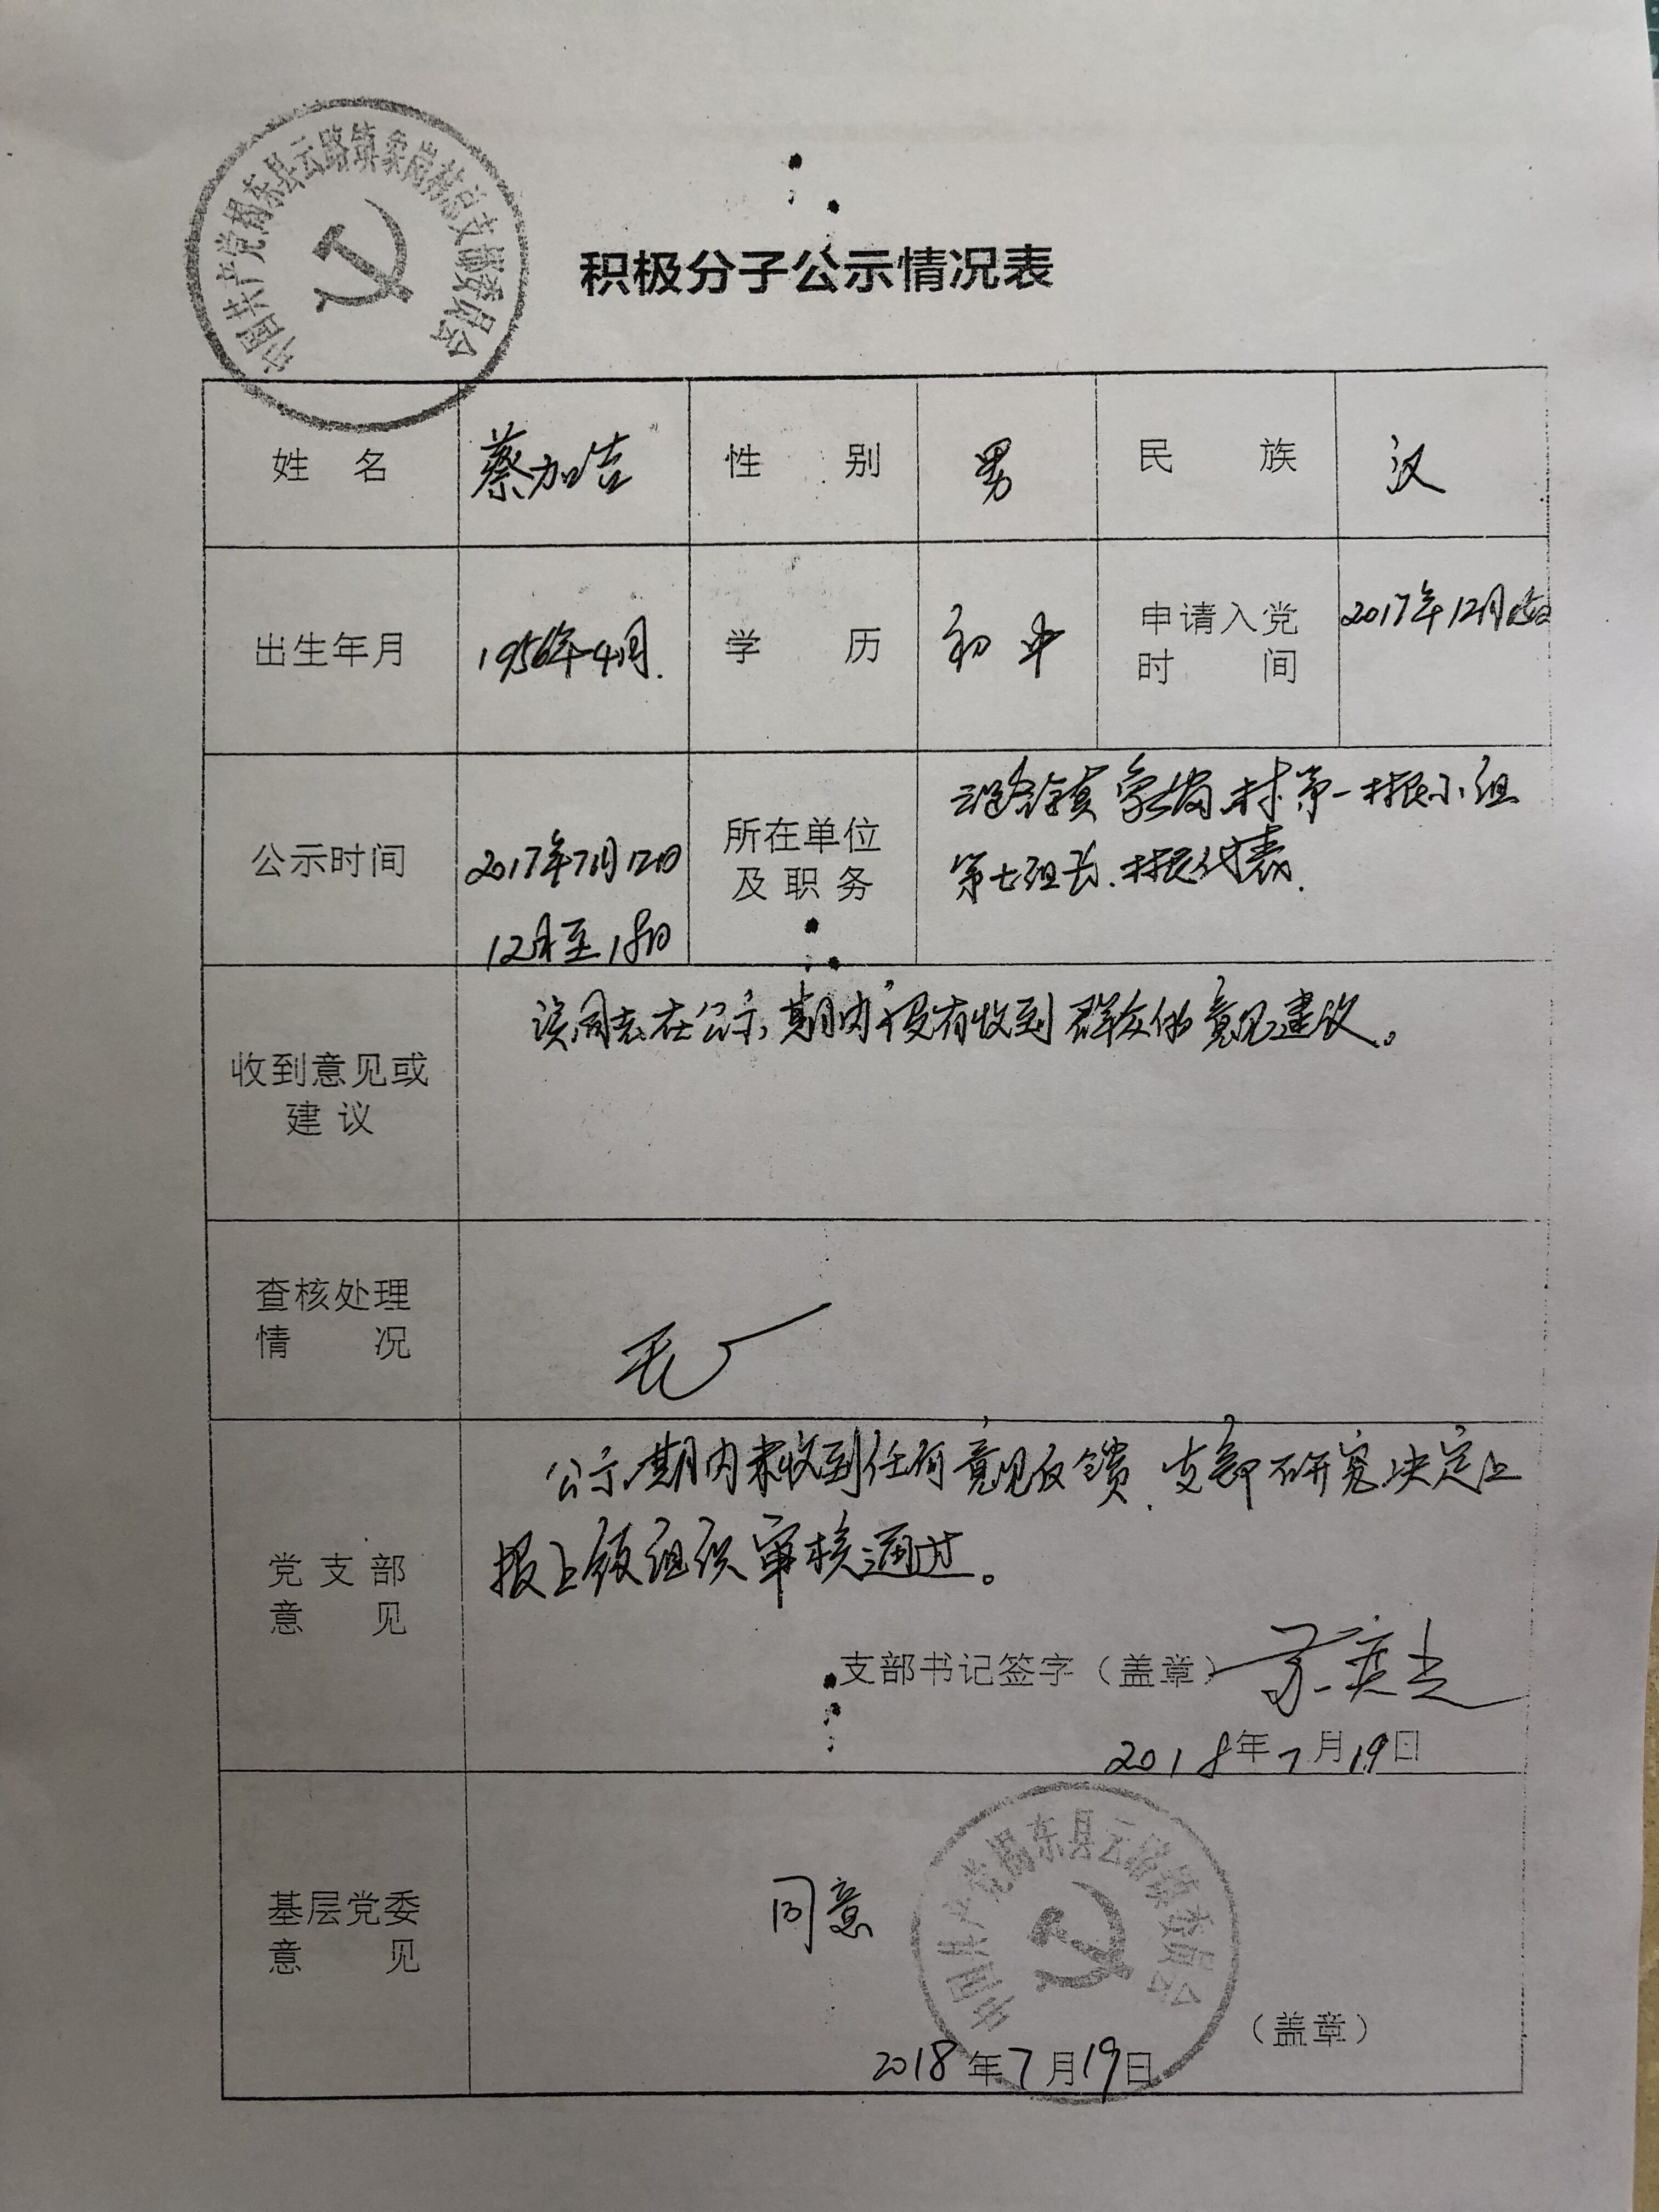 中国共产党揭东县云路镇象岗村总支部委员会
积极分子公示情况表
姓 名 蔡加吉 性 别 男 民 族 汉
出生年月 1956年4月. 学 历 初中 申请入党
时 间 2017年12月
公示时间 2017年7月12日
12日至18日
所在单位
及职务
云路镇象岗村第一村民小组
第七组长.村民代表.
收到意见或
建议
该同志在公示期内没有收到群众的意见建议。
查核处理
情 况
无
党支部
意 见
公示期内未收到任何意见反馈.支部研究决定上
报上级组织审核通过。
支部书记签字（盖章）
2018年7月19日
基层党委
意 见
同意
中国共产党揭东县云路镇委员会
（盖章）
2018年7月19日